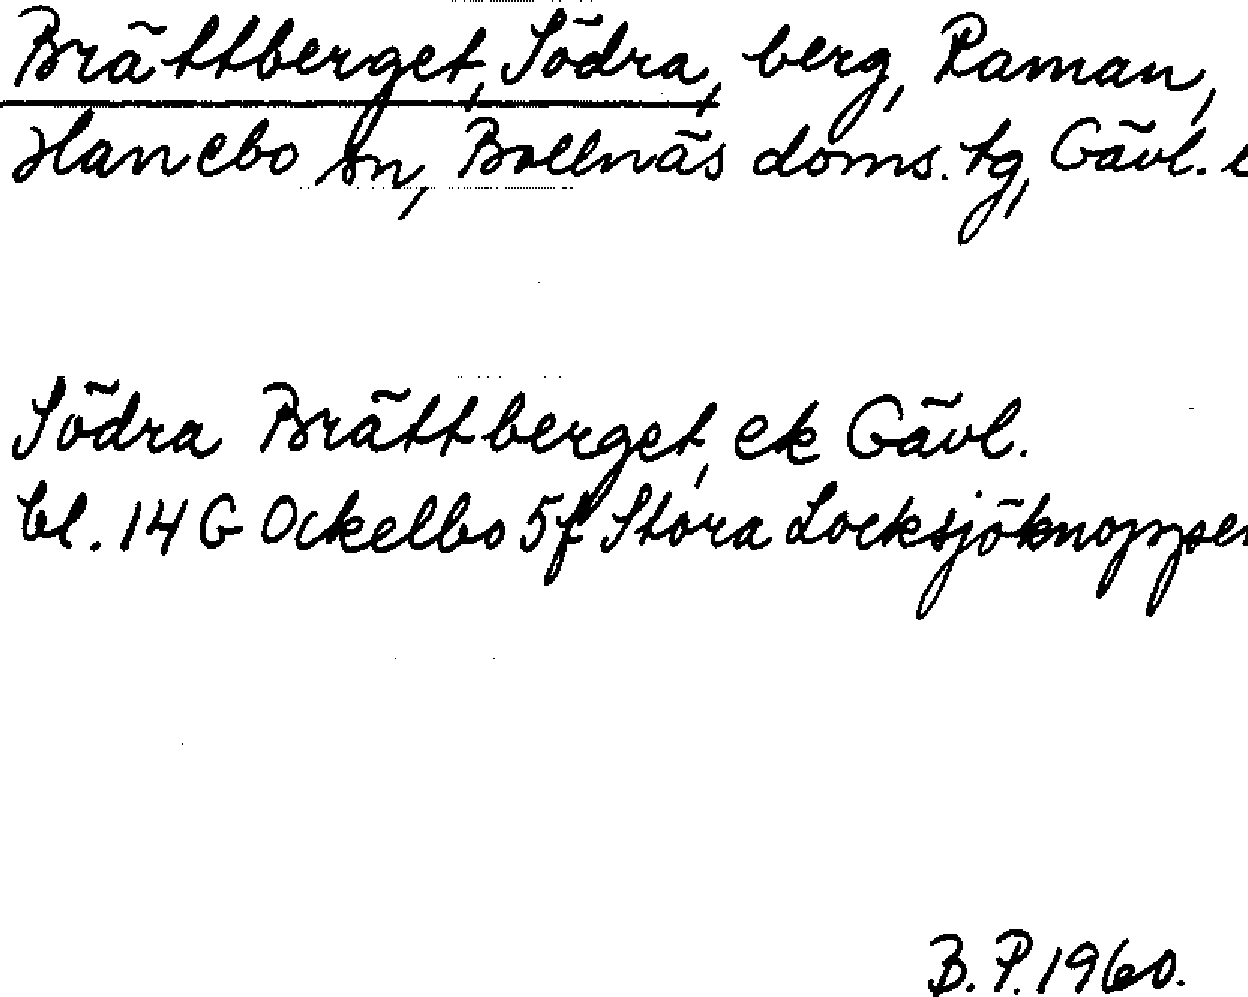 Brättberget, Södra, berg, Raman,
Hanebo sn, Bollnäs doms. tg, Gävl. l
Södra Brättberget, ek Gävl.
bl. 14 G Ockelbo 5f Stora Locksjöknoppen
B. P. 1960.